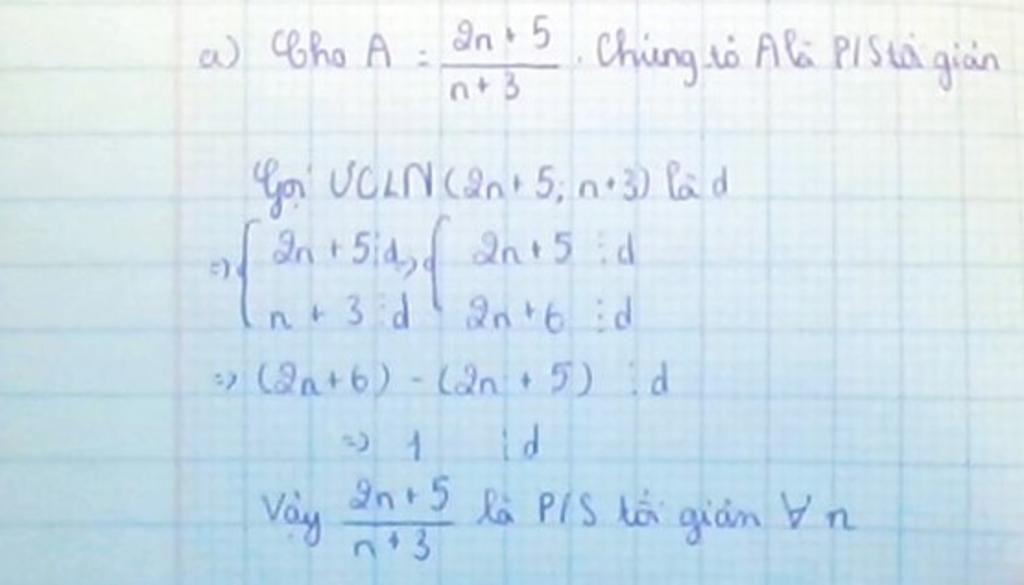 a) Cho A = \frac{2n + 5}{n + 3}. Chứng tỏ A là P/S tối giản
Gọi ƯCLN (2n + 5; n + 3) là d
=> { 2n + 5 ⋮ d => { 2n + 5 ⋮ d
n + 3 ⋮ d 2n + 6 ⋮ d
=> (2n + 6) - (2n + 5) ⋮ d
=> 1 ⋮ d
Vậy \frac{2n + 5}{n + 3} là P/S tối giản ∀ n